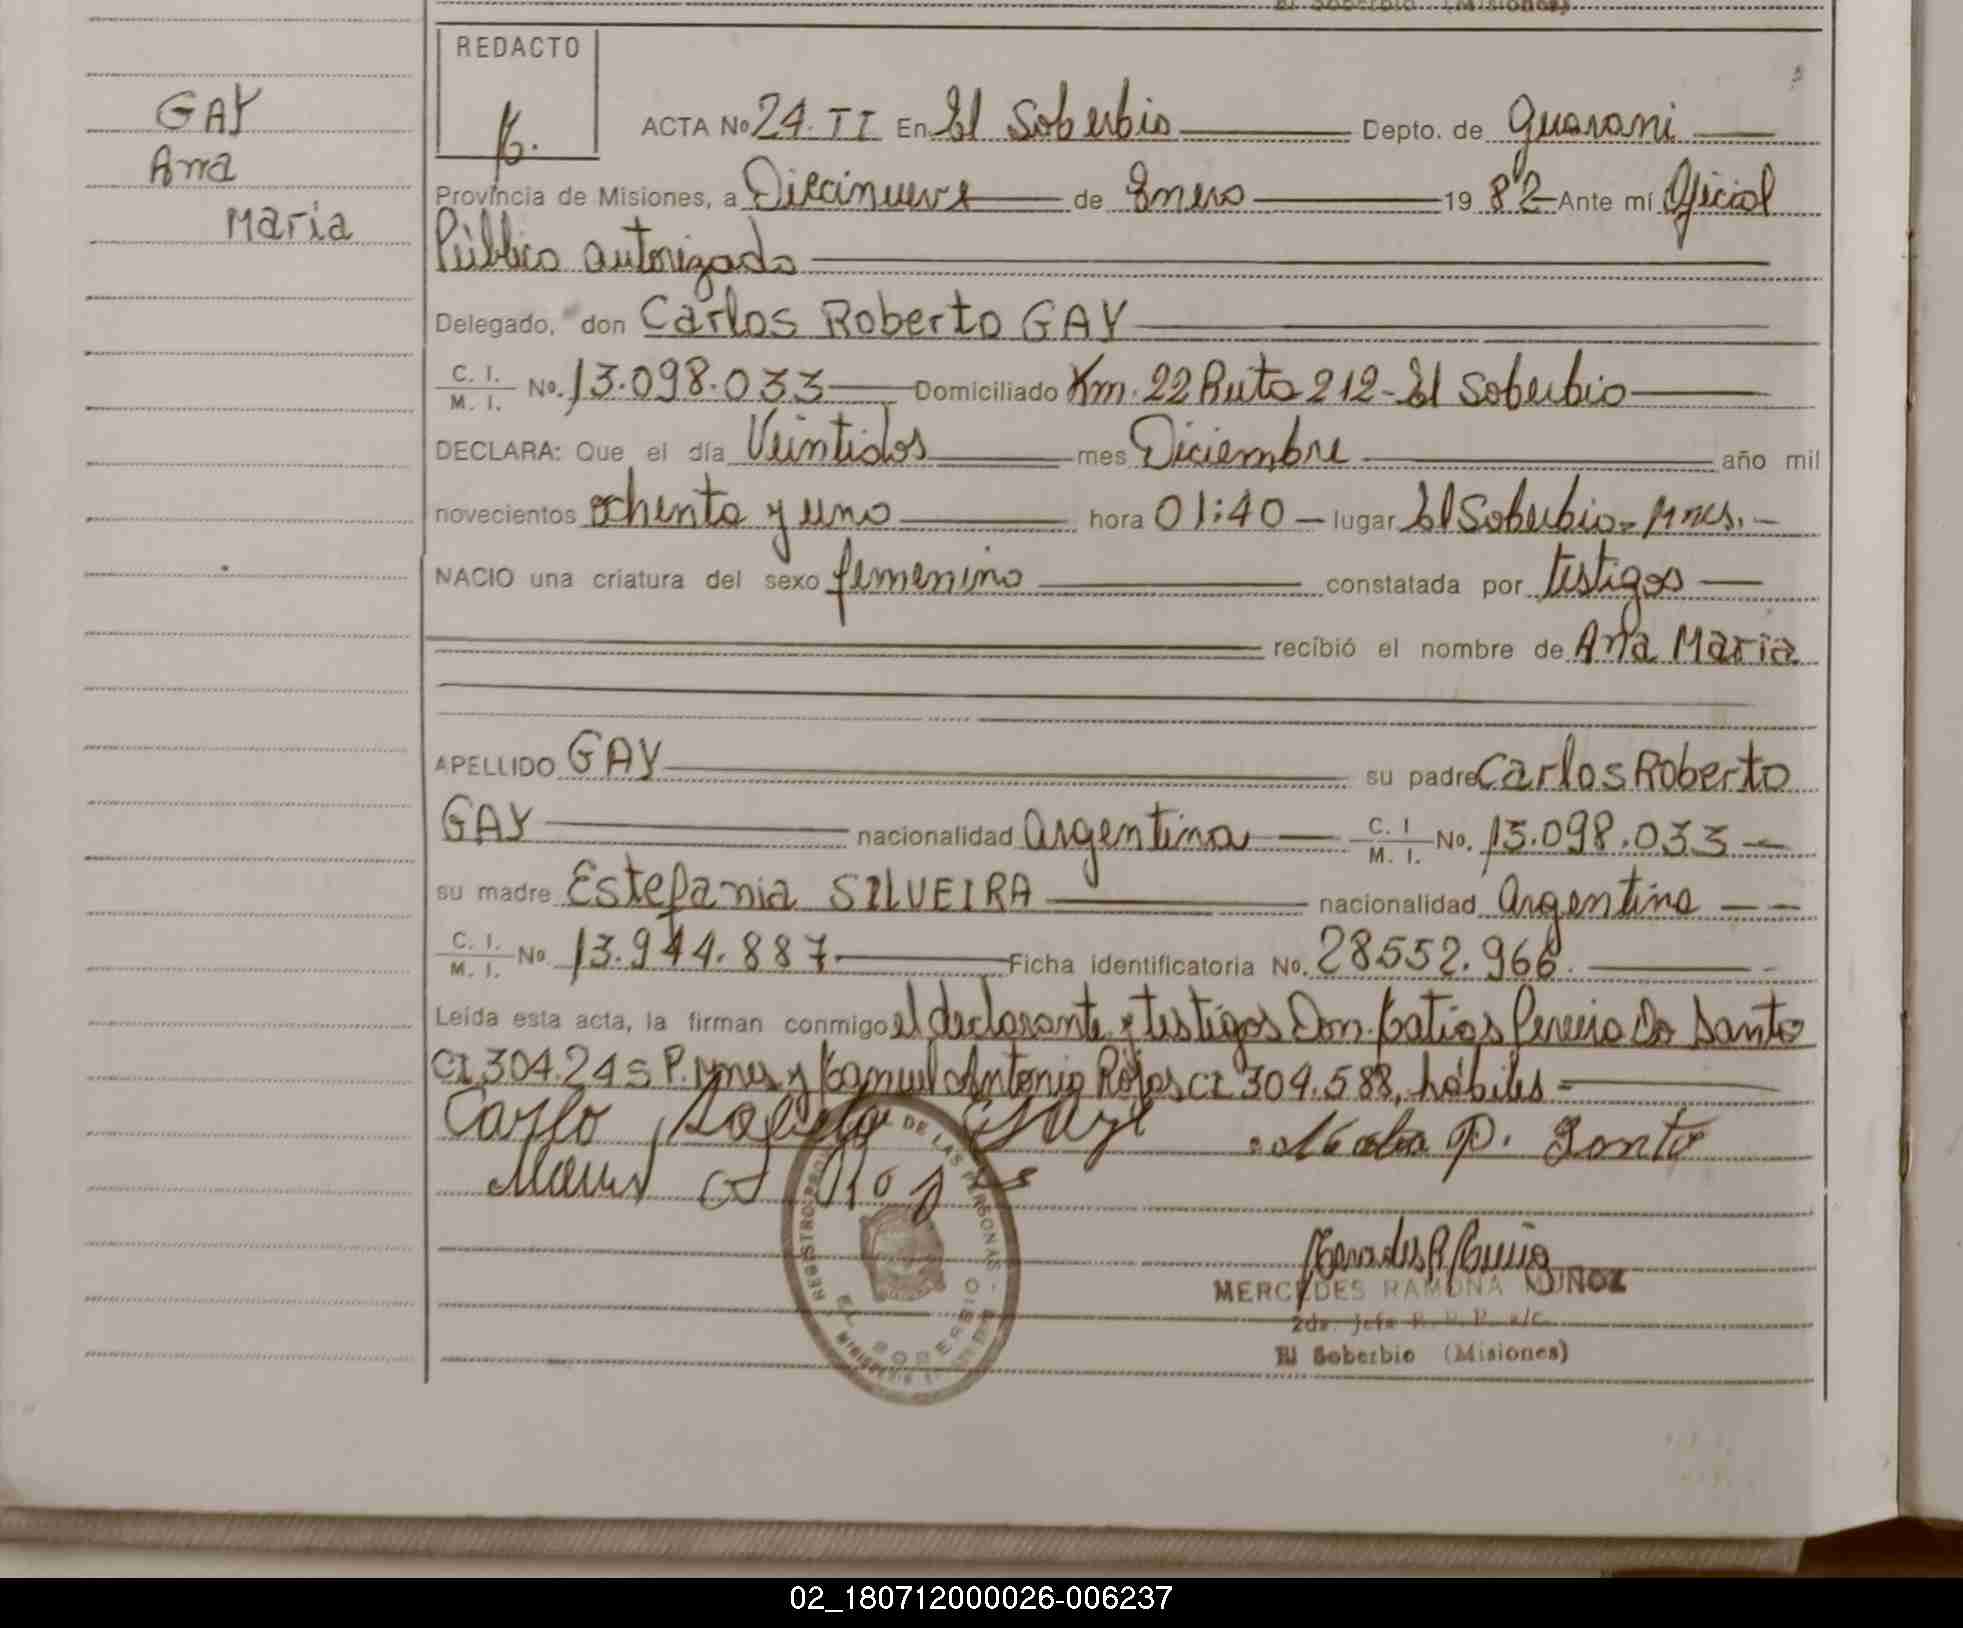 El Soberbio (Misiones)
REDACTO
GAY
Ana
Maria
ACTA No 24. II En El Soberbio Depto. de Guarani
Província de Misiones, a Diecinueve de Enero 19 82 Ante mí Oficial
Público autorizado
Delegado, don Carlos Roberto GAY
C. I. / M. I. No. 13.098.033 Domiciliado Km. 22 Ruta 212 - El Soberbio
DECLARA: Que el día Veintidos mes Diciembre año mil
novecientos ochenta y uno hora 01:40 — lugar El Soberbio - Mnes. -
NACIO una criatura del sexo femenino constatada por testigos
recibió el nombre de Ana Maria
APELLIDO GAY su padre Carlos Roberto
GAY nacionalidad Argentina C. I / M. I. No. 13.098.033
su madre Estefania SILVEIRA nacionalidad Argentina
C. I. / M. I. No. 13.944.887 Ficha identificatoria No. 28552.966.
Leída esta acta, la firman conmigo el declarante y testigos Don. Matias Pereira Do Santo
CI 304.245 P. Mnes y Manuel Antonio Rojas CI 304.588, hábiles
Carlo Roberto Gay
P. Santo
REGISTRO PROV. DE LAS PERSONAS
EL SOBERBIO
MERCEDES RAMONA MUÑOZ
2da. Jefe R. P. P. a/c
El Soberbio (Misiones)
02_180712000026-006237